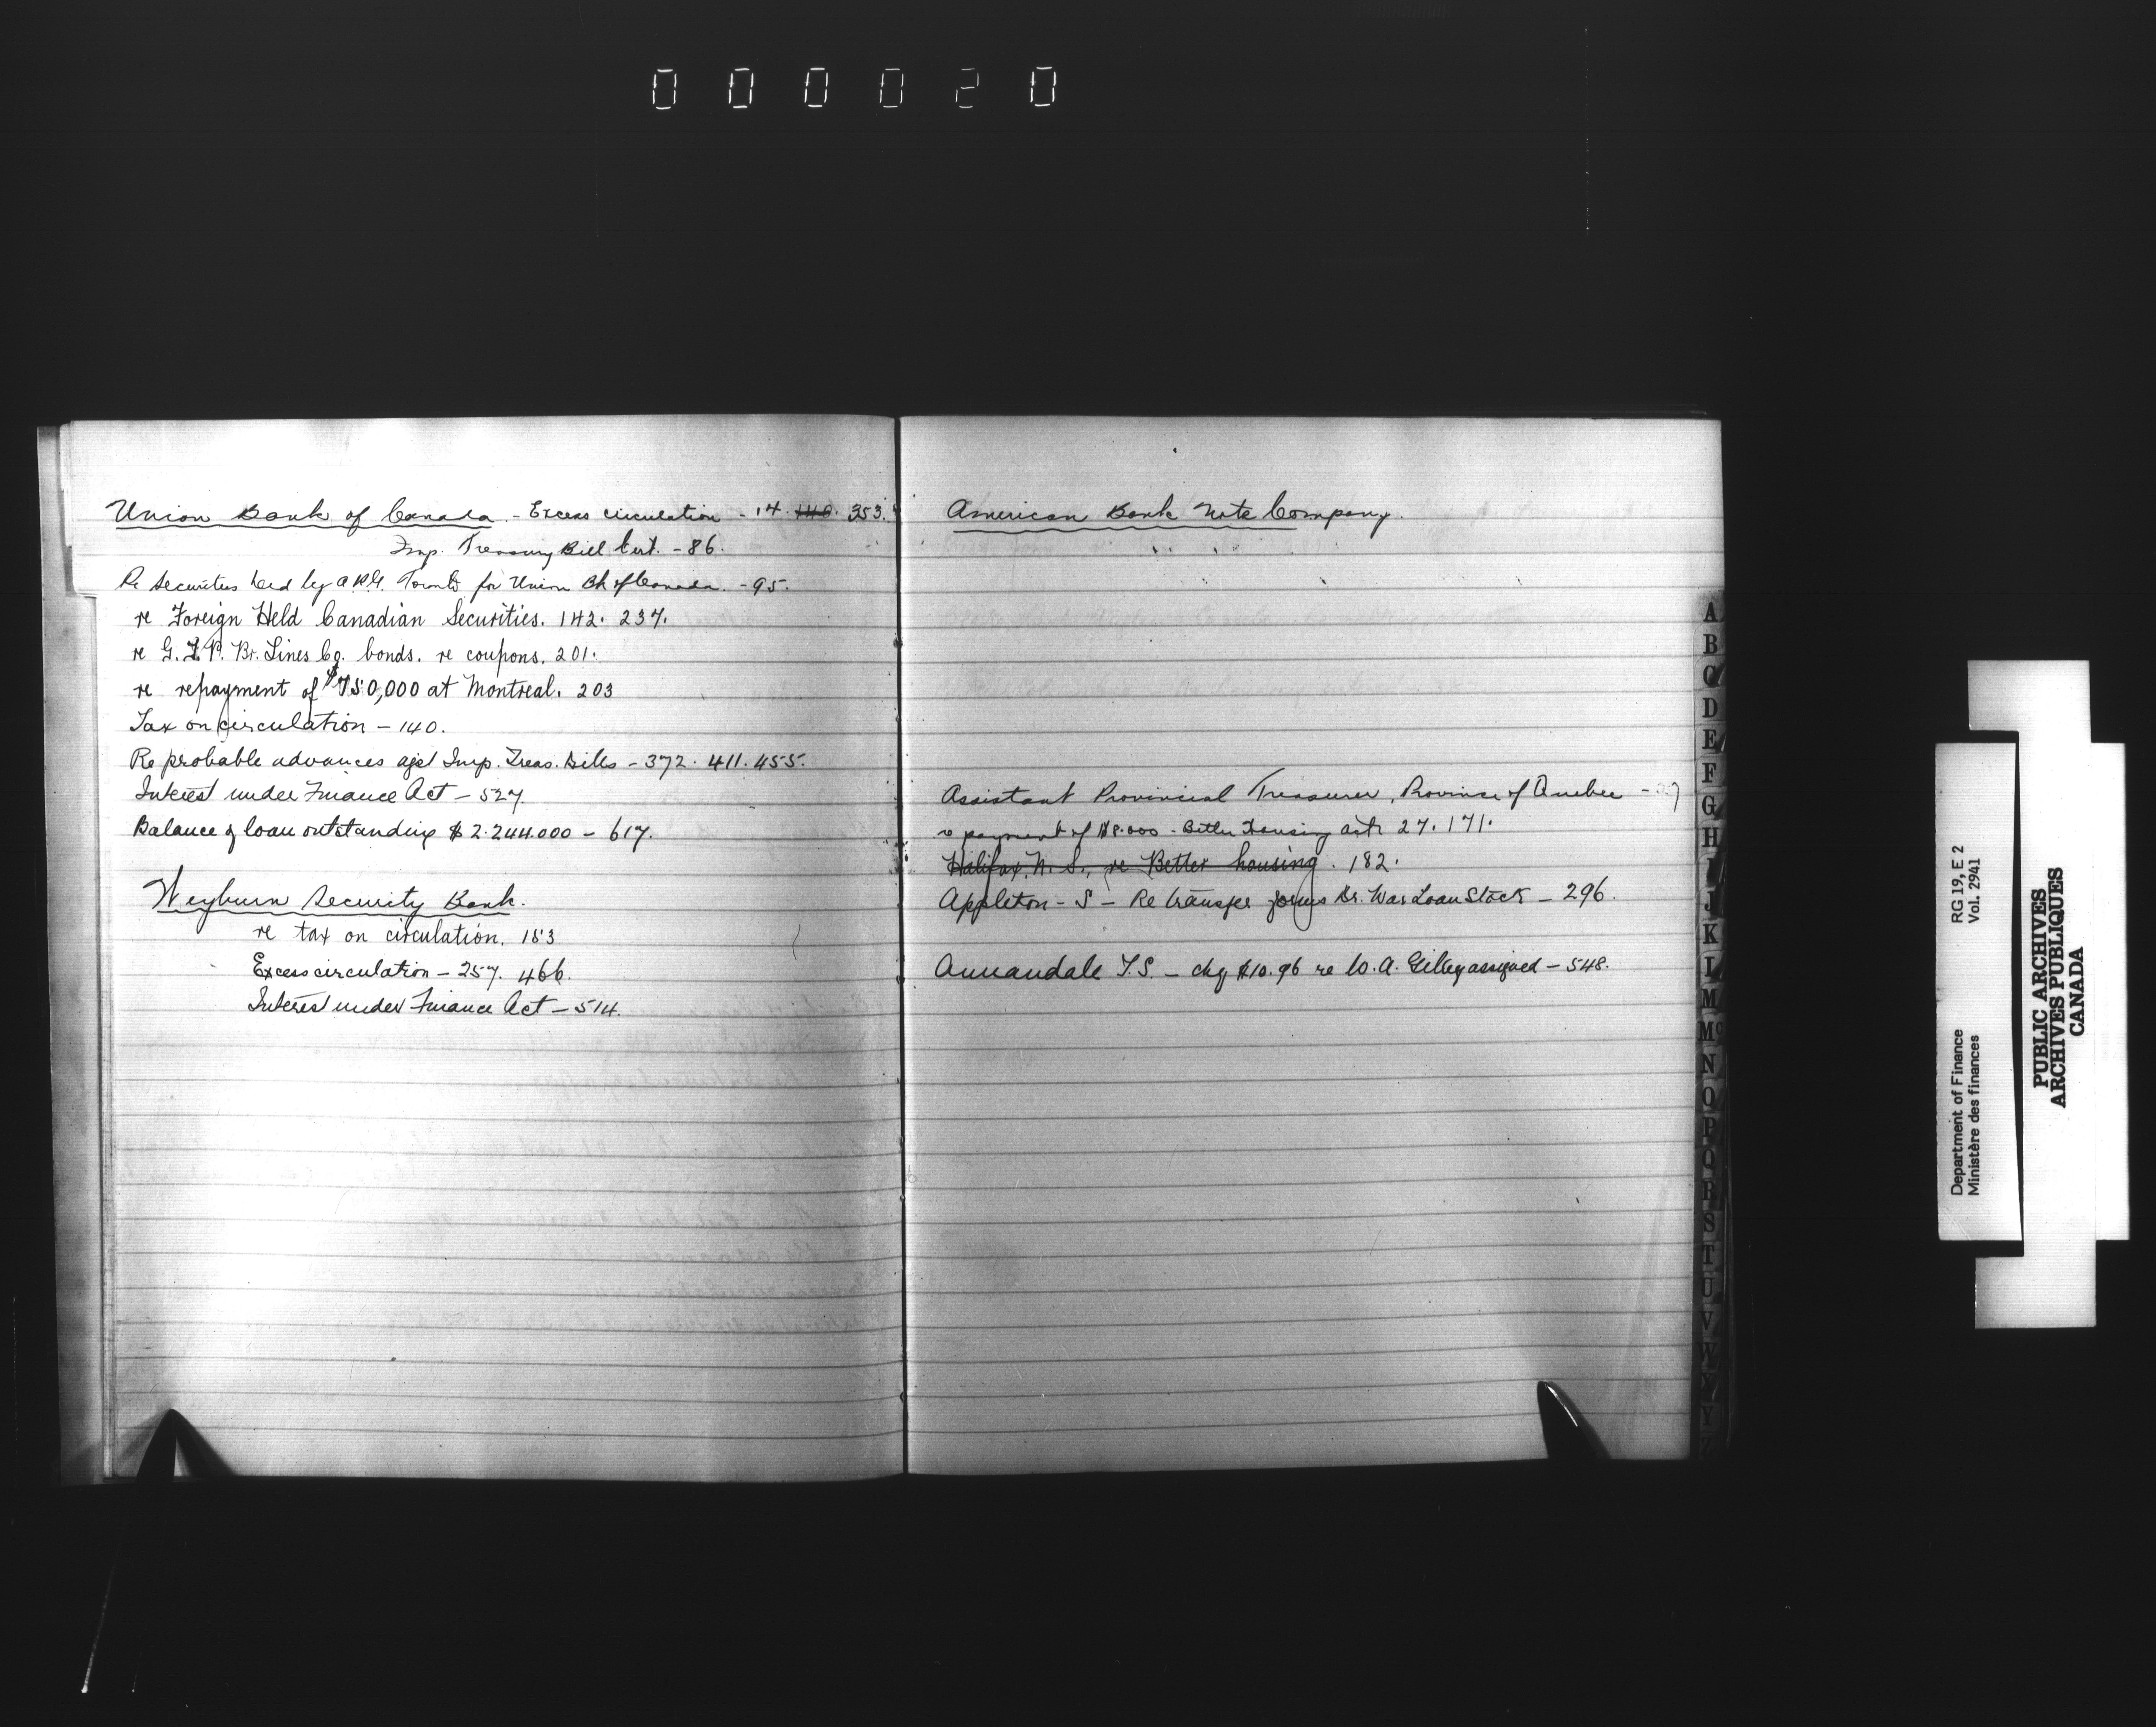 000020
Union Bank of Canada - Excess circulation - 14. 140. 353.
Imp. Treasury Bill Cert. - 86.
Re Securities held by A.R.G. Toronto for Union Bk of Canada. - 95.
re Foreign Held Canadian Securities. 142. 237.
re G.T.P. Br. Lines Co. bonds. re coupons. 201.
re repayment of $750,000 at Montreal. 203
Tax on circulation - 140.
Re probable advances agst Imp. Treas. Bills - 372. 411. 455.
Interest under Finance Act - 527.
Balance of loan outstanding $2.244.000 - 617.
Weyburn Security Bank.
re tax on circulation. 153
Excess circulation - 257. 466.
Interest under Finance Act - 514.
American Bank Note Company.
Assistant Provincial Treasurer, Province of Quebec - 27
re payment of $8.000 - Better Housing Act 27. 171.
Halifax, N.S., re Better housing. 182.
Appleton - S - Re transfer forms Dr. War Loan Stock - 296.
Annandale T.S. - chq $10.96 re W.A. assigned - 548.
A
B
C
D
E
F
G
H
I
J
K
L
M
Mc
N
O
P
Q
R
S
T
U
V
W
X
Y
Department of Finance RG 19, E 2
Ministère des finances Vol. 2941
PUBLIC ARCHIVES
ARCHIVES PUBLIQUES
CANADA